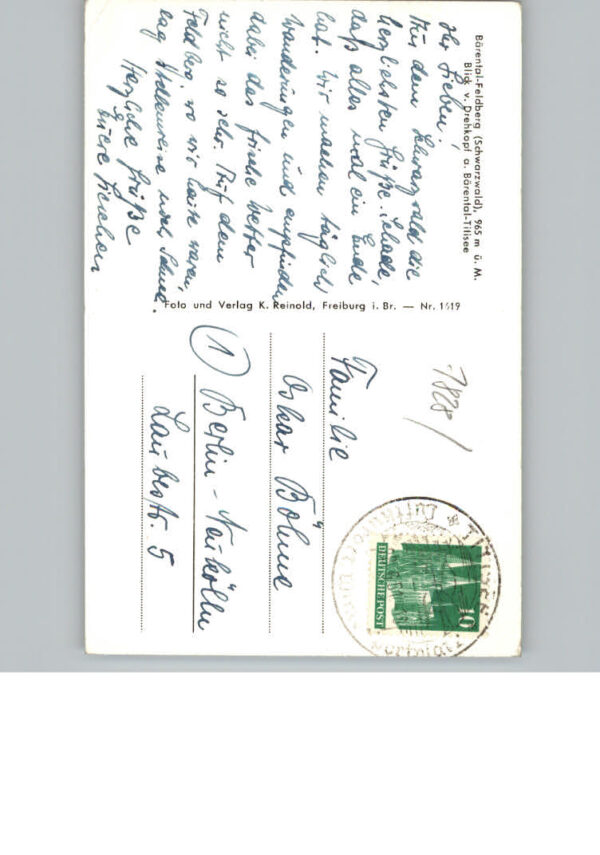 Bärental-Feldberg (Schwarzwald), 965 m ü. M.
Blick v. Drehkopf a. Bärental-Titisee
Ihr Lieben!
Aus dem Schwarzwald die
herzlichsten Grüße. Schade,
daß alles mal ein Ende
hat. Wir machen täglich
Wanderungen und empfinden
dabei das frische Wetter
nicht so sehr. Auf dem
Feldberg, wo wir heute waren,
lag stellenweise noch Schnee.
Herzliche Grüße
Eure
Foto und Verlag K. Reinold, Freiburg i. Br. — Nr. 1619
7828
Familie
Oskar Böhme
(1) Berlin-Neukölln
Laubestr. 5
TITISEE
LUFTKURORT
DEUTSCHE POST
10